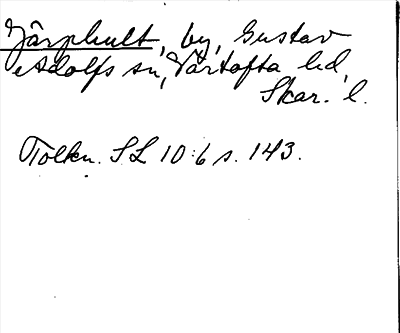 Järphult, by, Gustav
Adolfs sn, Vartofta hd,
Skar. l.
Tolkn. SL 10:6 s. 143.